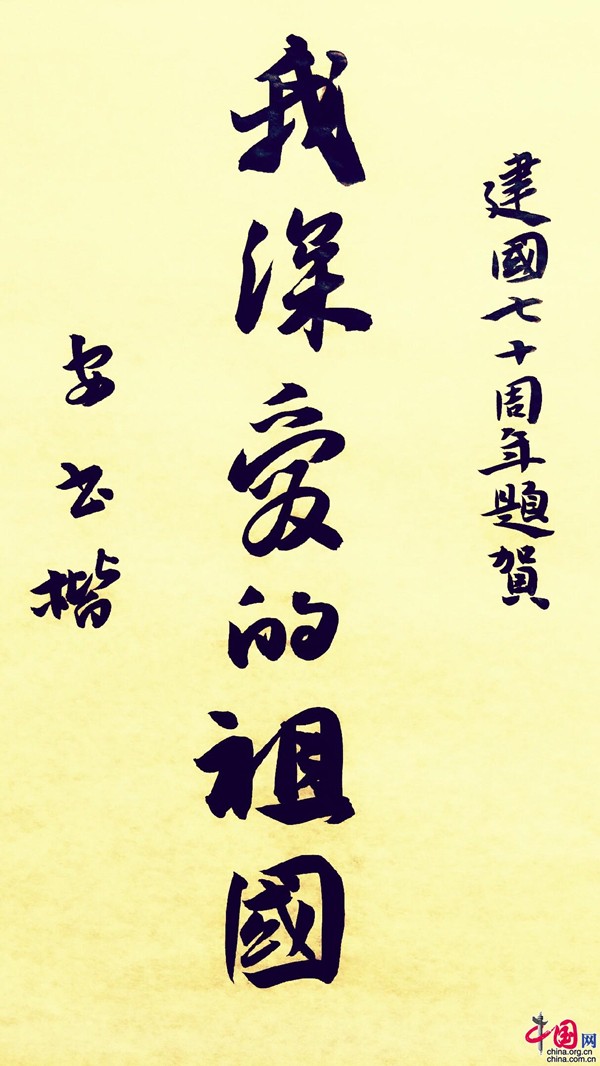 建國七十周年題賀
我深愛的祖國
安书楷
中国网
china.org.cn
china.com.cn